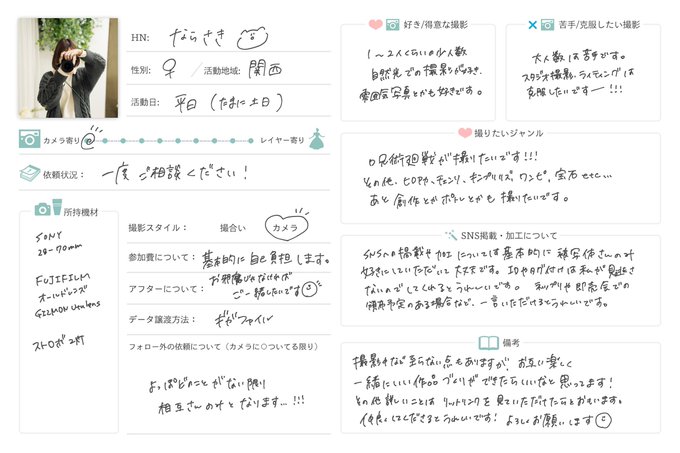 HN: ならさき
性別: ♀ / 活動地域: 関西
活動日: 平日 (たまに土日)
カメラ寄り レイヤー寄り
依頼状況: 一度ご相談ください!
所持機材
SONY
28-70mm
FUJIFILM
オールドレンズ
GIZMON Utulens
ストロボ2灯
撮影スタイル: 撮合い カメラ
参加費について: 基本的に自己負担します。
アフターについて: お邪魔じゃなければ
ご一緒したいです
データ譲渡方法: ギガファイル
フォロー外の依頼について (カメラに○ついてる限り)
よっぽどのことがない限り
相互さんのみとなります…!!!
好き/得意な撮影
1〜2人くらいの少人数
自然光での撮影が好き。
雰囲気写真とかも好きです。
苦手/克服したい撮影
大人数は苦手です。
スタジオ撮影、ライティングは
克服したいですー!!!
撮りたいジャンル
呪術廻戦が撮りたいです!!!
その他、ヒロアカ、チェンソ、キンプリ、ワンピ、宝石etc...
あと創作とかポトレとかも撮りたいです。
SNS掲載・加工について
SNSへの掲載や加工については基本的に被写体さんのみ
好きにしていただいて大丈夫です。IDやタグ付けは私が見逃さ
ないのでしてくれるとうれしいです。ネップリや即売会での
頒布予定のある場合など、一言いただけるとうれしいです。
備考
撮影など至らない点もありますが、お互い楽しく
一緒にいい作品づくりができたらいいなと思ってます!
その他詳しいことはリットリンクを見ていただけたらとおもいます。
仲良くしてくださるとうれしいです! よろしくお願いします